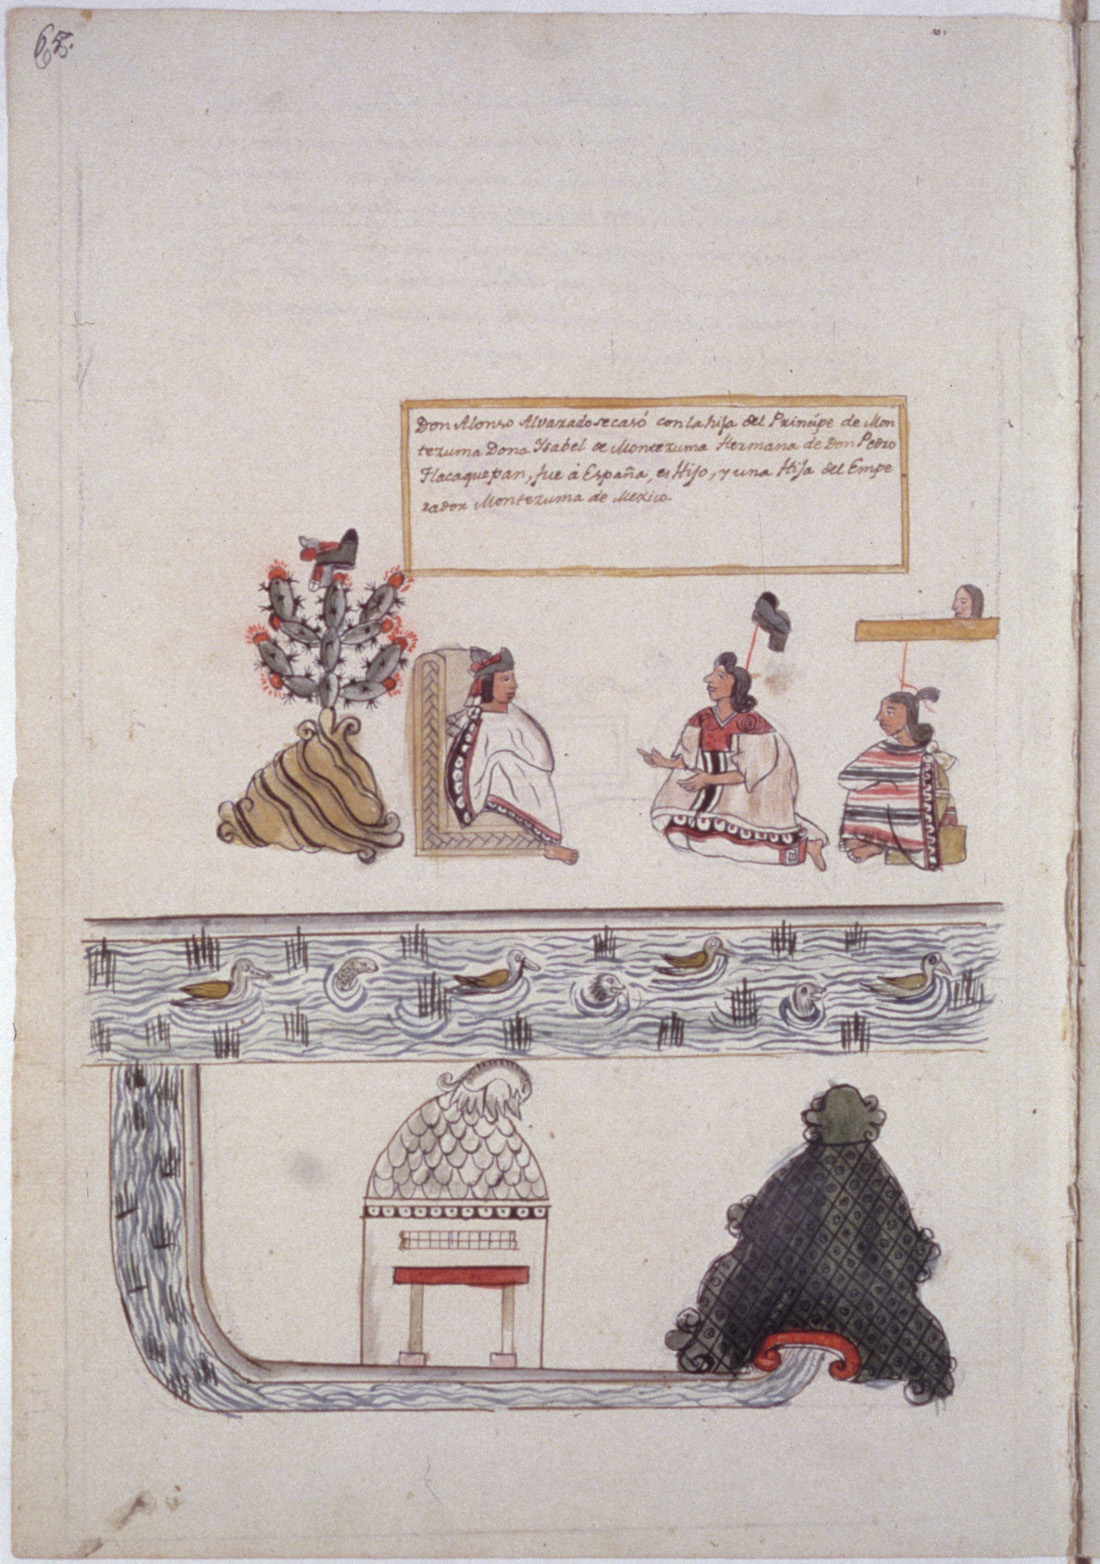 65.
Don Alonso Alvarado se casó con la hija del Principe de Mon
tezuma Dona Ysabel de Montezuma Hermana de Don Pedro
Tlacaquepan, fue á España, es Hijo, y una Hija del Empe
rador Montezuma de Mexico.